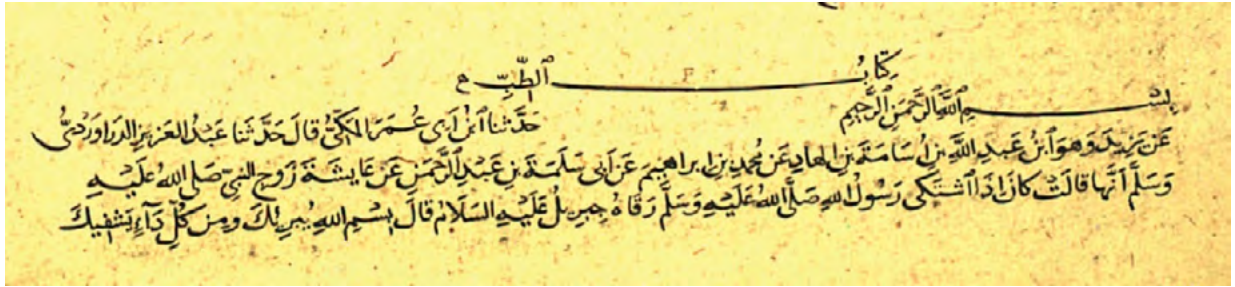 كِتَابُ ٱلطِّبِّ
بِسْمِ ٱللَّهِ ٱلرَّحْمَنِ ٱلرَّحِيمِ حَدَّثَنَا ٱبْنُ أَبِي عُمَرَ المَكِّيُّ قَالَ حَدَّثَنَا عَبْدُ العَزِيزِ الدَرَاوَرْدِيُّ
عَنْ يَزِيدَ وَهُوَ ٱبْنُ عَبْدِ اللَّهِ بْنِ أُسَامَةَ بْنِ الهَادِ عَنْ مُحَمَّدِ بْنِ إِبْرَاهِيمَ عَنْ أَبِي سَلَمَةَ بْنِ عَبْدِ ٱلرَّحْمَنِ عَنْ عَايِشَةَ زَوْجِ النَّبِيِّ صَلَّى اللهُ عَلَيْهِ
وَسَلَّمَ أَنَّهَا قَالَتْ كَانَ إِذَا ٱشْتَكَى رَسُولُ اللهِ صَلَّى اللهُ عَلَيْهِ وَسَلَّمَ رَقَاهُ جِبْرِيلُ عَلَيْهِ السَّلَامُ قَالَ بِسْمِ اللهِ يُبْرِيكَ وَمِنْ كُلِّ دَآءٍ يَشْفِيكَ